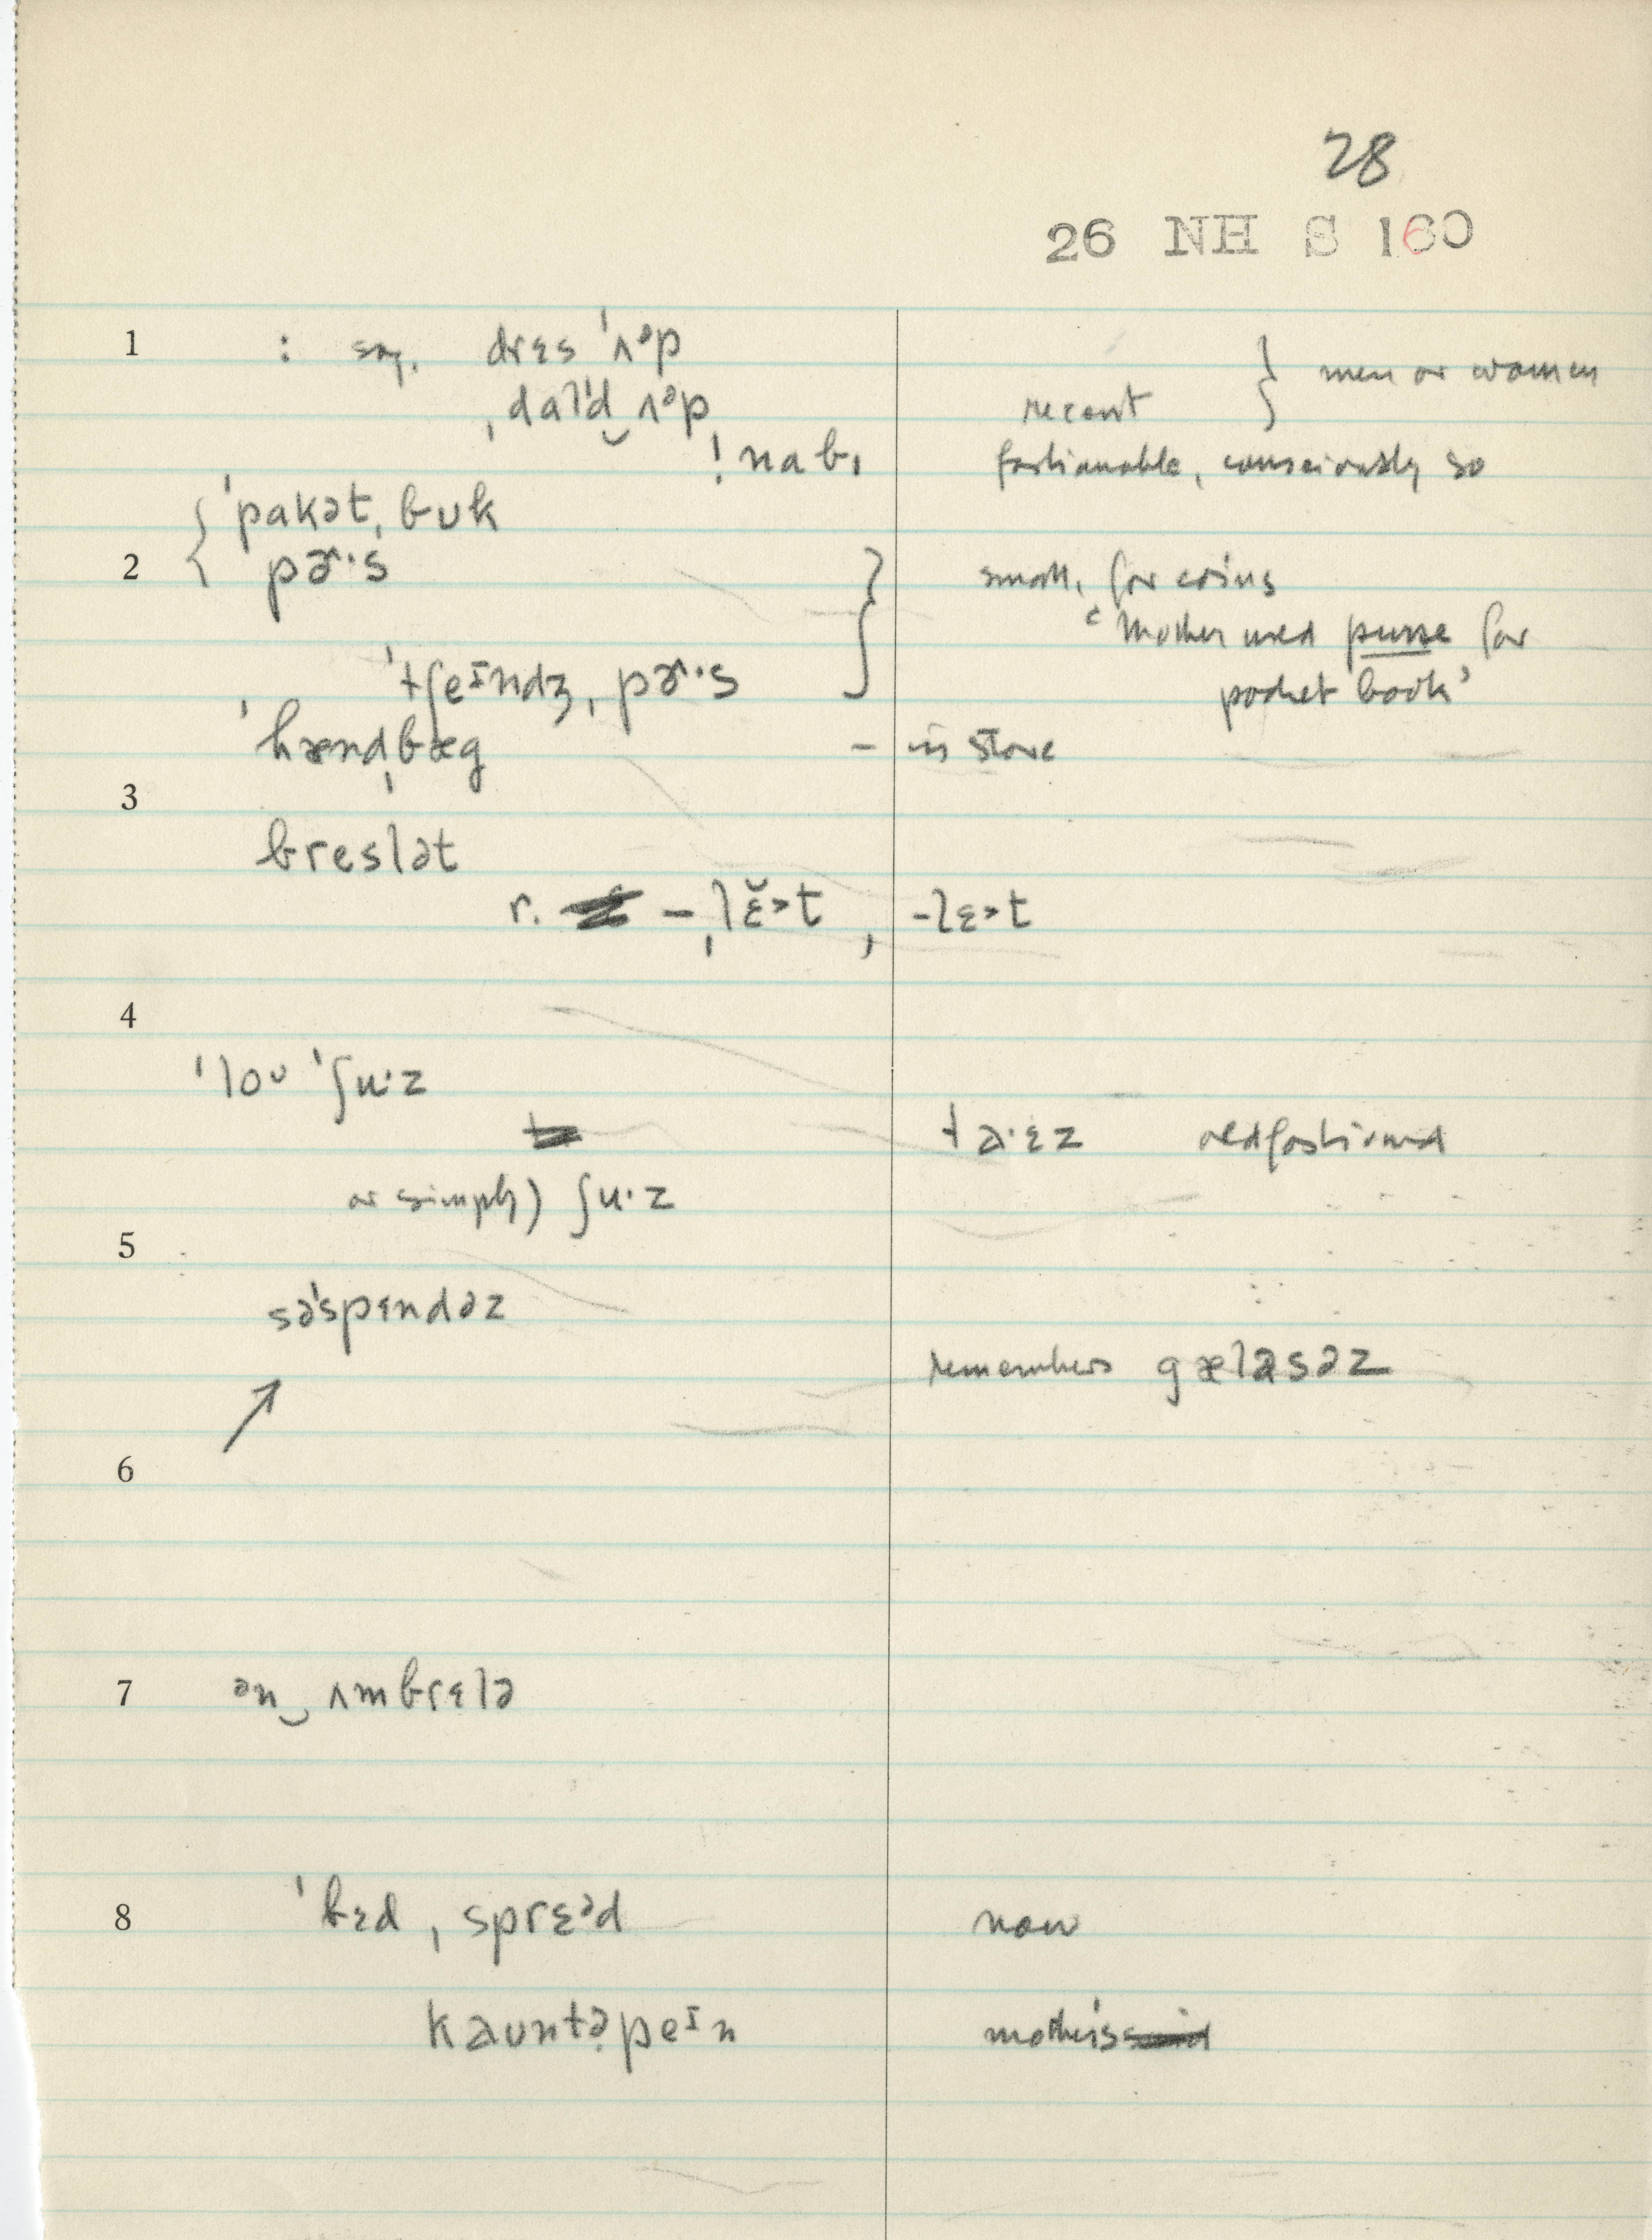 28
26 NH S 160
1 : sug. drɛs ˈʌᵊp
ˌdalˈd‿ʌᵊp recent } men or women
! nabɪ fashionable, consciously so
{ ˈpakət ˌbʊk
2 pɚˑs } small, for coins
‘Mother used purse for
ˈtʃeᶦndʒ ˌpɚˑs pocket book’
ˈhændˌbæg – in store
3
breslət
r. – ˌlɛ̆˃t , -lɛ˃t
4
ˈloᶸ ˈʃuˑz
taˑɛz oldfashioned
or simply) ʃuˑz
5
səˈspɛndəz
remembers gæləsəz
↗
6
7 ᵊn‿ʌmbrɛlə
8 ˈbɛd ˌsprɛᵊd now
kaʊntəpeᶦn mother's